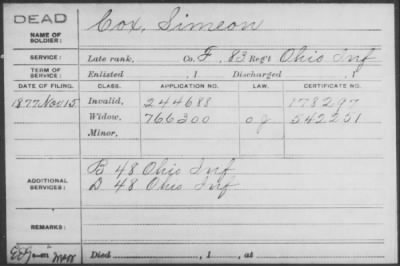 DEAD
NAME OF SOLDIER: Cox, Simeon
SERVICE: Late rank, Co. F, 83 Reg't Ohio Inf
TERM OF SERVICE: Enlisted , 1 Discharged , 1
DATE OF FILING. CLASS. APPLICATION NO. LAW. CERTIFICATE NO.
1877 Nov 15 Invalid, 244688 178297
Widow, 766300 o g 542251
Minor,
ADDITIONAL SERVICES: B 48 Ohio Inf
D 48 Ohio Inf
REMARKS:
Died , 1 , at